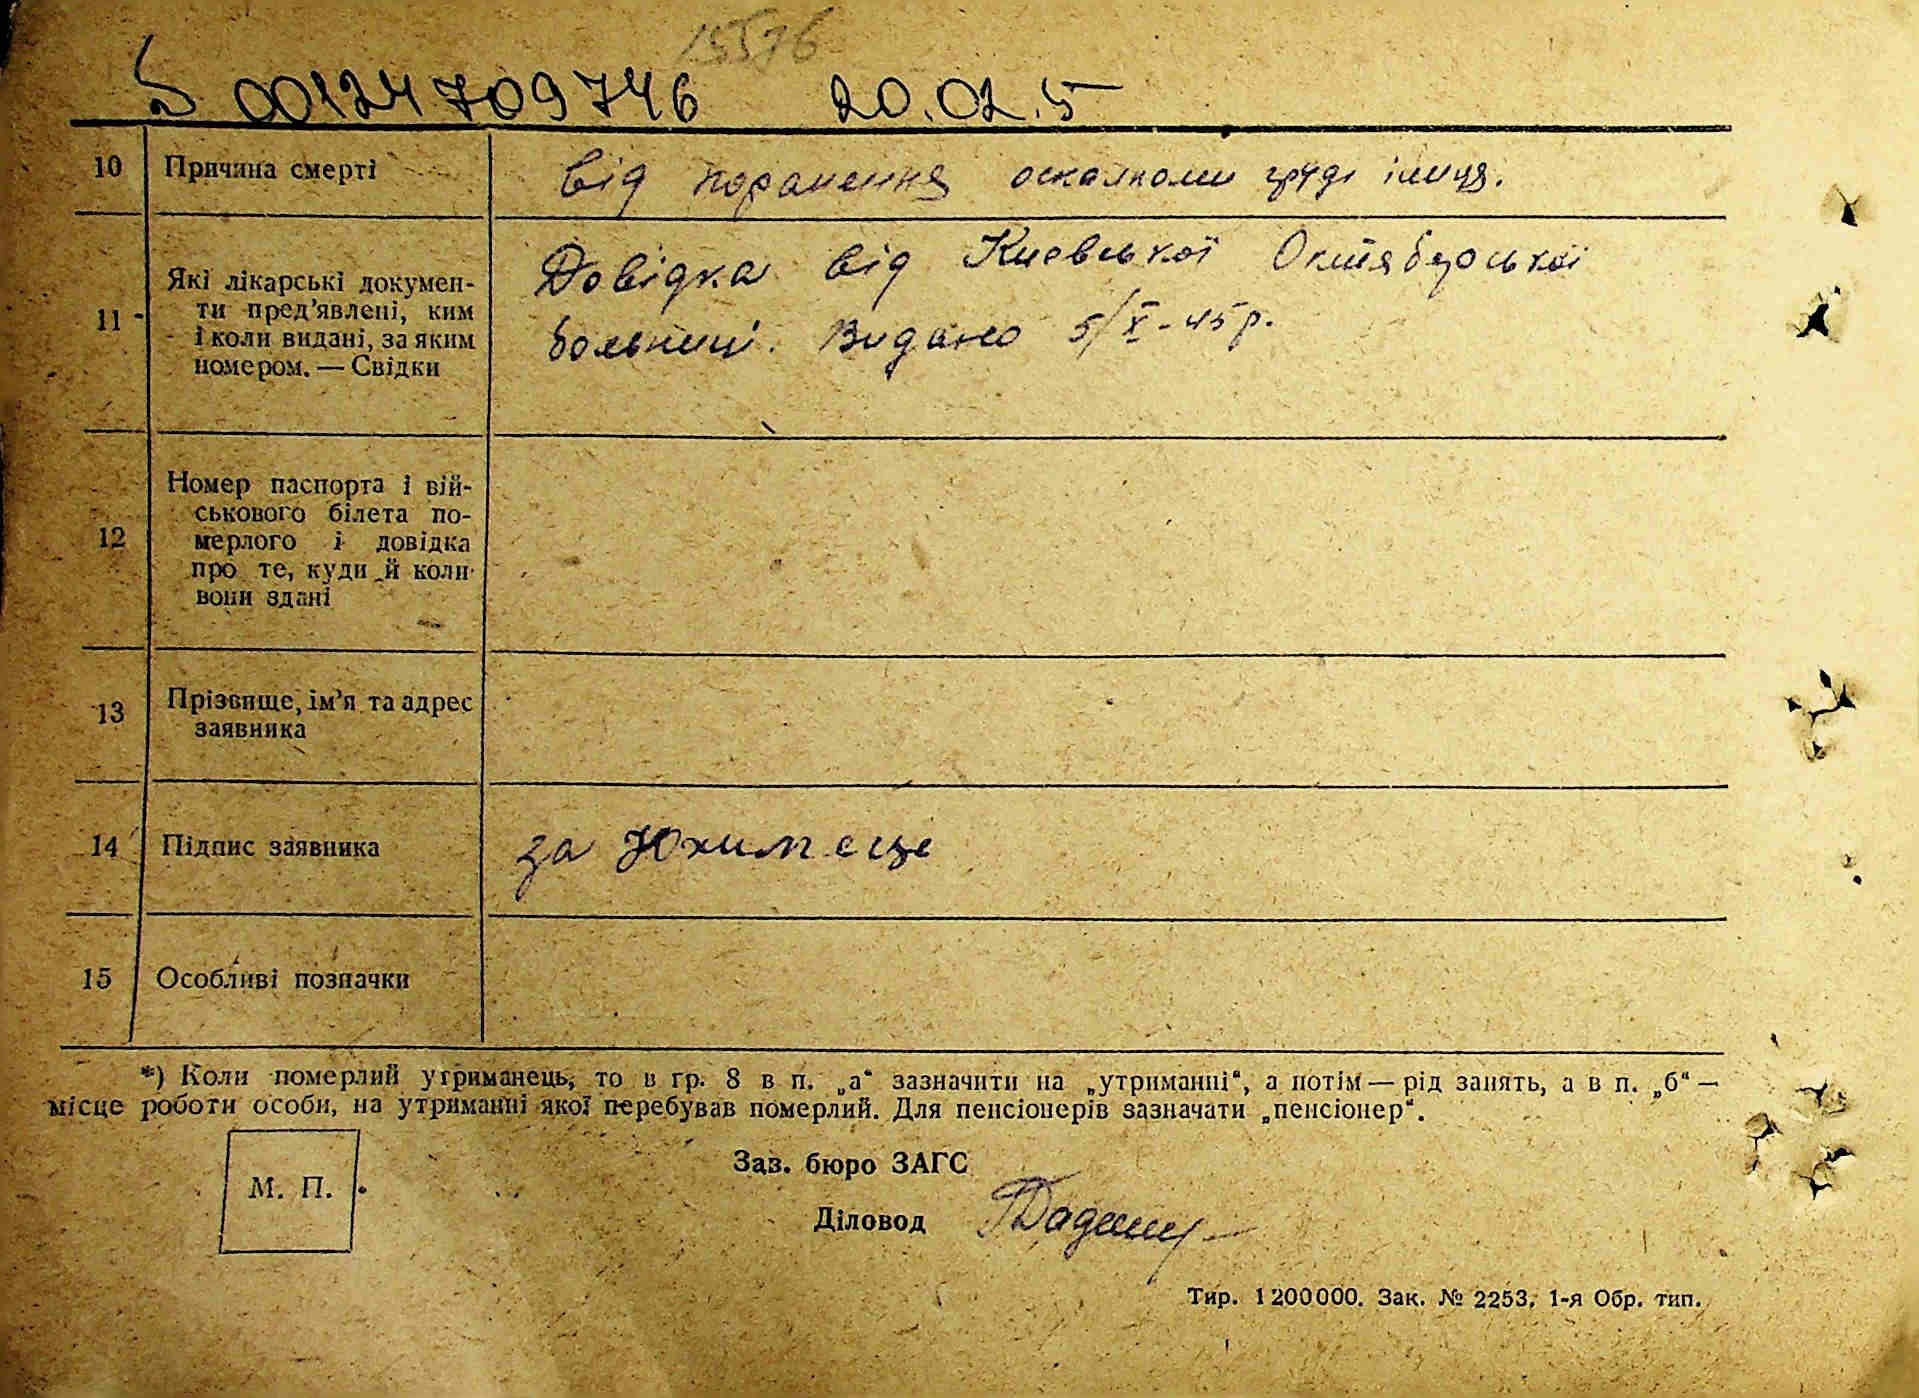 15576
00124709746 20.02.5
10 Причина смерті від поранення осколками груді і лиця.
11 Які лікарські докумен-
ти пред’явлені, ким
і коли видані, за яким
номером. — Свідки
Довідка від Киевської Октяберської
больниці. Видано 5/X-45р.
12 Номер паспорта і вій-
ськового білета по-
мерлого і довідка
про те, куди й коли
вони здані
13 Прізвище, ім’я та адрес
заявника
14 Підпис заявника за
15 Особливі позначки
*) Коли померлий утриманець, то в гр. 8 в п. „а“ зазначити на „утриманні“, а потім — рід занять, а в п. „б“ —
місце роботи особи, на утриманні якої перебував померлий. Для пенсіонерів зазначати „пенсіонер“.
М. П.
Зав. бюро ЗАГС
Діловод
Тир. 1 200 000. Зак. № 2253. 1-я Обр. тип.